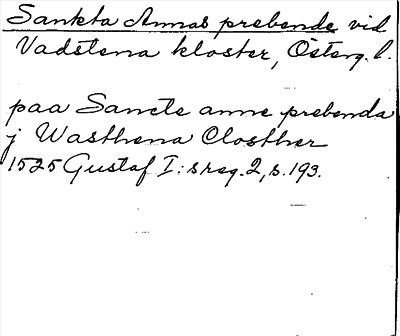 Sankta Annas prebende vid
Vadstena kloster, Österg. l.
paa Sancte anne prebenda
j Wasthena Closther
1525 Gustaf I:s reg. 2, s. 193.